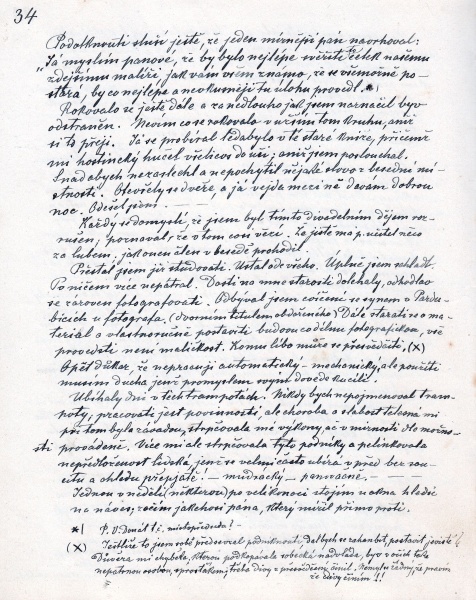 34
Podotknouti sluší ještě, že jeden mírnější pán navrhoval:
"Já myslím panove, že by bylo nejlépe svěřiti celek našemu
zdejšímu malíři jak vám všem známo, že se všemožně po-
stará, by co nejlépe a neokusměji tu úlohu provedl. *)
Rokovalo se ještě dále a zanedlouho jak jsem naznačil byv
odstraněn. Nevím co se rokovalo v užším tom kruhu, aniž
si to přeji. Já se probíral hledabylo v té staré knize, přičemž
mi hostinský hučel všelicos do uší; aniž jsem poslouchal.
Snad abych nezaslechl a nepochytil nějaké slovo z besední mí-
stnosti. Otevřely se dveře, a já vejda mezi ně dávám dobrou
noc. Odešel jsem. —
Každý se domyslí, že jsem byl tímto divadelním dějem roz-
rušen, poznával, že v tom cosi vězí. Že ještě má p. učitel něco
za lubem, jak onen člen v besedě prohodil.
Přestal jsem již studovati. Ustal ode všeho. Úplně jsem schládl.
Po ničem více nepátral. Dosti na mne starosti doléhaly, odhodlav
se zároveň fotografovati. Odbýval jsem cvičení se synem v Pardu-
bicích u fotografa. (dvorním titulem obdařeného) Dále starati se o ma-
teriál a vlastnoručně postaviti budovu co dílnu fotografickou, vše
provedsti není maličkost. Komu libo může se přesvědčiti. (X)
Opět důkaz, že nepracuji automaticky - mechanicky, ale použíti
musím ducha jenž promyslem svým dovede kucílit.
Ubíhaly dni v těch trampotách. Nikdy bych nepojmenoval tram-
poty; pracovati jest povinností, ale choroba a slabost tělesná mi
při tom byla závadou, strpčovala mé výkony, ač v mírnosti dlo možno-
sti prováděné. Více mi ale strpčovala tyto podniky a pelinkovala
nepředloženost lidská, jenž se velmi často ubírá v před bez sou-
citu a ohledu přepjatě. — mudrácky — panovačně. — — —
Jednou v neděli (některou) po velikonoci stojím u okna hledíc
na náves; vidím jakéhosi pána, který mířil přímo proti.
*) P. V. Donát t. č. místopředseda? —
(X) Jestliže to jsem robě předsevzal podniknouti, dal bych se zahanbit, postavit jeviště?
Důvěra mi chyběla, kterou podkopávala robecká nadvláda, byv v očích těch
nepatrnou osobou, sprosťákem; třeba divy z přesvědčení činil. Nemyslu žádný, že pravím
že divy činím!!